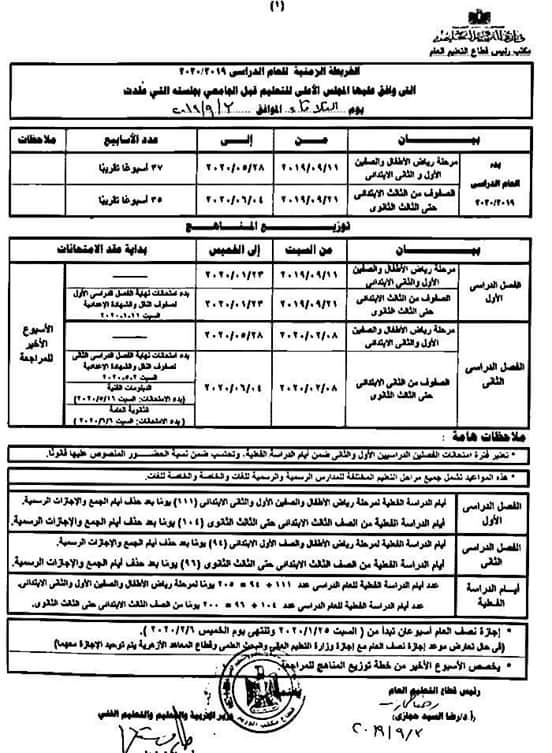 (١)
وزارة التربية والتعليم
مكتب رئيس قطاع التعليم العام
الخريطة الزمنية للعام الدراسى ٢٠٢٠/٢٠١٩
التى وافق عليها المجلس الأعلى للتعليم قبل الجامعي بجلسته التي عُقدت
يوم الثلاثاء الموافق ٢٠١٩/٩/٣
بيـــان مـــن إلـــى عدد الأسابيع ملاحظات
بدء العام الدراسى ٢٠٢٠/٢٠١٩
مرحلة رياض الأطفال والصفين الأول و الثانى الابتدائى ٢٠١٩/٠٩/١١ ٢٠٢٠/٠٥/٢٨ ٣٧ أسبوعًا تقريبًا
الصفوف من الثالث الابتدائى حتى الثالث الثانوى ٢٠١٩/٠٩/٢١ ٢٠٢٠/٠٦/٠٤ ٣٥ أسبوعًا تقريبًا
توزيـــع المنـــاهـــج
بيـــان من السبت إلى الخميس بداية عقد الامتحانات
الفصل الدراسى الأول
مرحلة رياض الأطفال والصفين الأول والثانى الابتدائى ٢٠١٩/٠٩/١١ ٢٠٢٠/٠١/٢٣
الصفوف من الثالث الابتدائى حتى الثالث الثانوى ٢٠١٩/٠٩/٢١ ٢٠٢٠/٠١/٢٣
بدء امتحانات نهاية الفصل الدراسى الأول
لصفوف النقل والشهادة الإعدادية
السبت
الأسبوع الأخير للمراجعة
الفصل الدراسى الثانى
مرحلة رياض الأطفال والصفين الأول والثانى الابتدائى ٢٠٢٠/٠٢/٠٨ ٢٠٢٠/٠٥/٢٨
الصفوف من الثالث الابتدائى حتى الثالث الثانوى ٢٠٢٠/٠٢/٠٨ ٢٠٢٠/٠٦/٠٤
بدء امتحانات نهاية الفصل الدراسى الثانى
لصفوف النقل والشهادة الإعدادية
السبت
الدبلومات الفنية
(بدء الامتحانات: السبت ٢٠٢٠/٥/١٦)
الثانوية العامة
(بدء الامتحانات: السبت ٢٠٢٠/٦/٦)
ملاحظات هامة :
• تعتبر فترة امتحانات الفصلين الدراسيين الأول والثانى ضمن أيام الدراسة الفعلية، وتحتسب ضمن نسبة الحضـــور المنصوص عليها قانونًا.
• هذه المواعيد تشمل جميع مراحل التعليم المختلفة للمدارس الرسمية والرسمية للغات والخاصة والخاصة للغات.
الفصل الدراسى الأول
أيام الدراسة الفعلية لمرحلة رياض الأطفال والصفين الأول والثانى الابتدائى (١١١) يومًا بعد حذف أيام الجمع والإجازات الرسمية.
أيام الدراسة الفعلية من الصف الثالث الابتدائى حتى الثالث الثانوى (١٠٤) يومًا بعد حذف أيام الجمع والإجازات الرسمية.
الفصل الدراسى الثانى
أيام الدراسة الفعلية لمرحلة رياض الأطفال والصف الأول الابتدائى (٩٤) يومًا بعد حذف أيام الجمع والإجازات الرسمية.
أيام الدراسة الفعلية من الصف الثالث الابتدائى حتى الثالث الثانوى (٩٦) يومًا بعد حذف أيام الجمع والإجازات الرسمية.
أيـــام الدراسة الفعلية
عدد أيام الدراسة الفعلية للعام الدراسى عدد ١١١ + ٩٤ = ٢٠٥ يومًا لمرحلة رياض الأطفال والصفين الأول والثانى الابتدائى.
عدد أيام الدراسة الفعلية للعام الدراسى عدد ١٠٤ + ٩٦ = ٢٠٠ يومًا من الصف الثالث الابتدائى حتى الثالث الثانوى.
• إجازة نصف العام أسبوعان تبدأ من ( السبت ٢٠٢٠/١/٢٥ وتنتهى يوم الخميس ٢٠٢٠/٢/٦ ).
(فى حال تعارض موعد إجازة نصف العام مع إجازة وزارة التعليم العالى والبحث العلمى وقطاع المعاهد الأزهرية يتم توحيد الإجازة معهما)
• يخصص الأسبوع الأخير من خطة توزيع المناهج للمراجعة.
رئيس قطاع التعليم العام
أ.د/رضا السيد حجازى
٢٠١٩/٩/٣
يعتمد
وزير التربية والتعليم والتعليم الفني